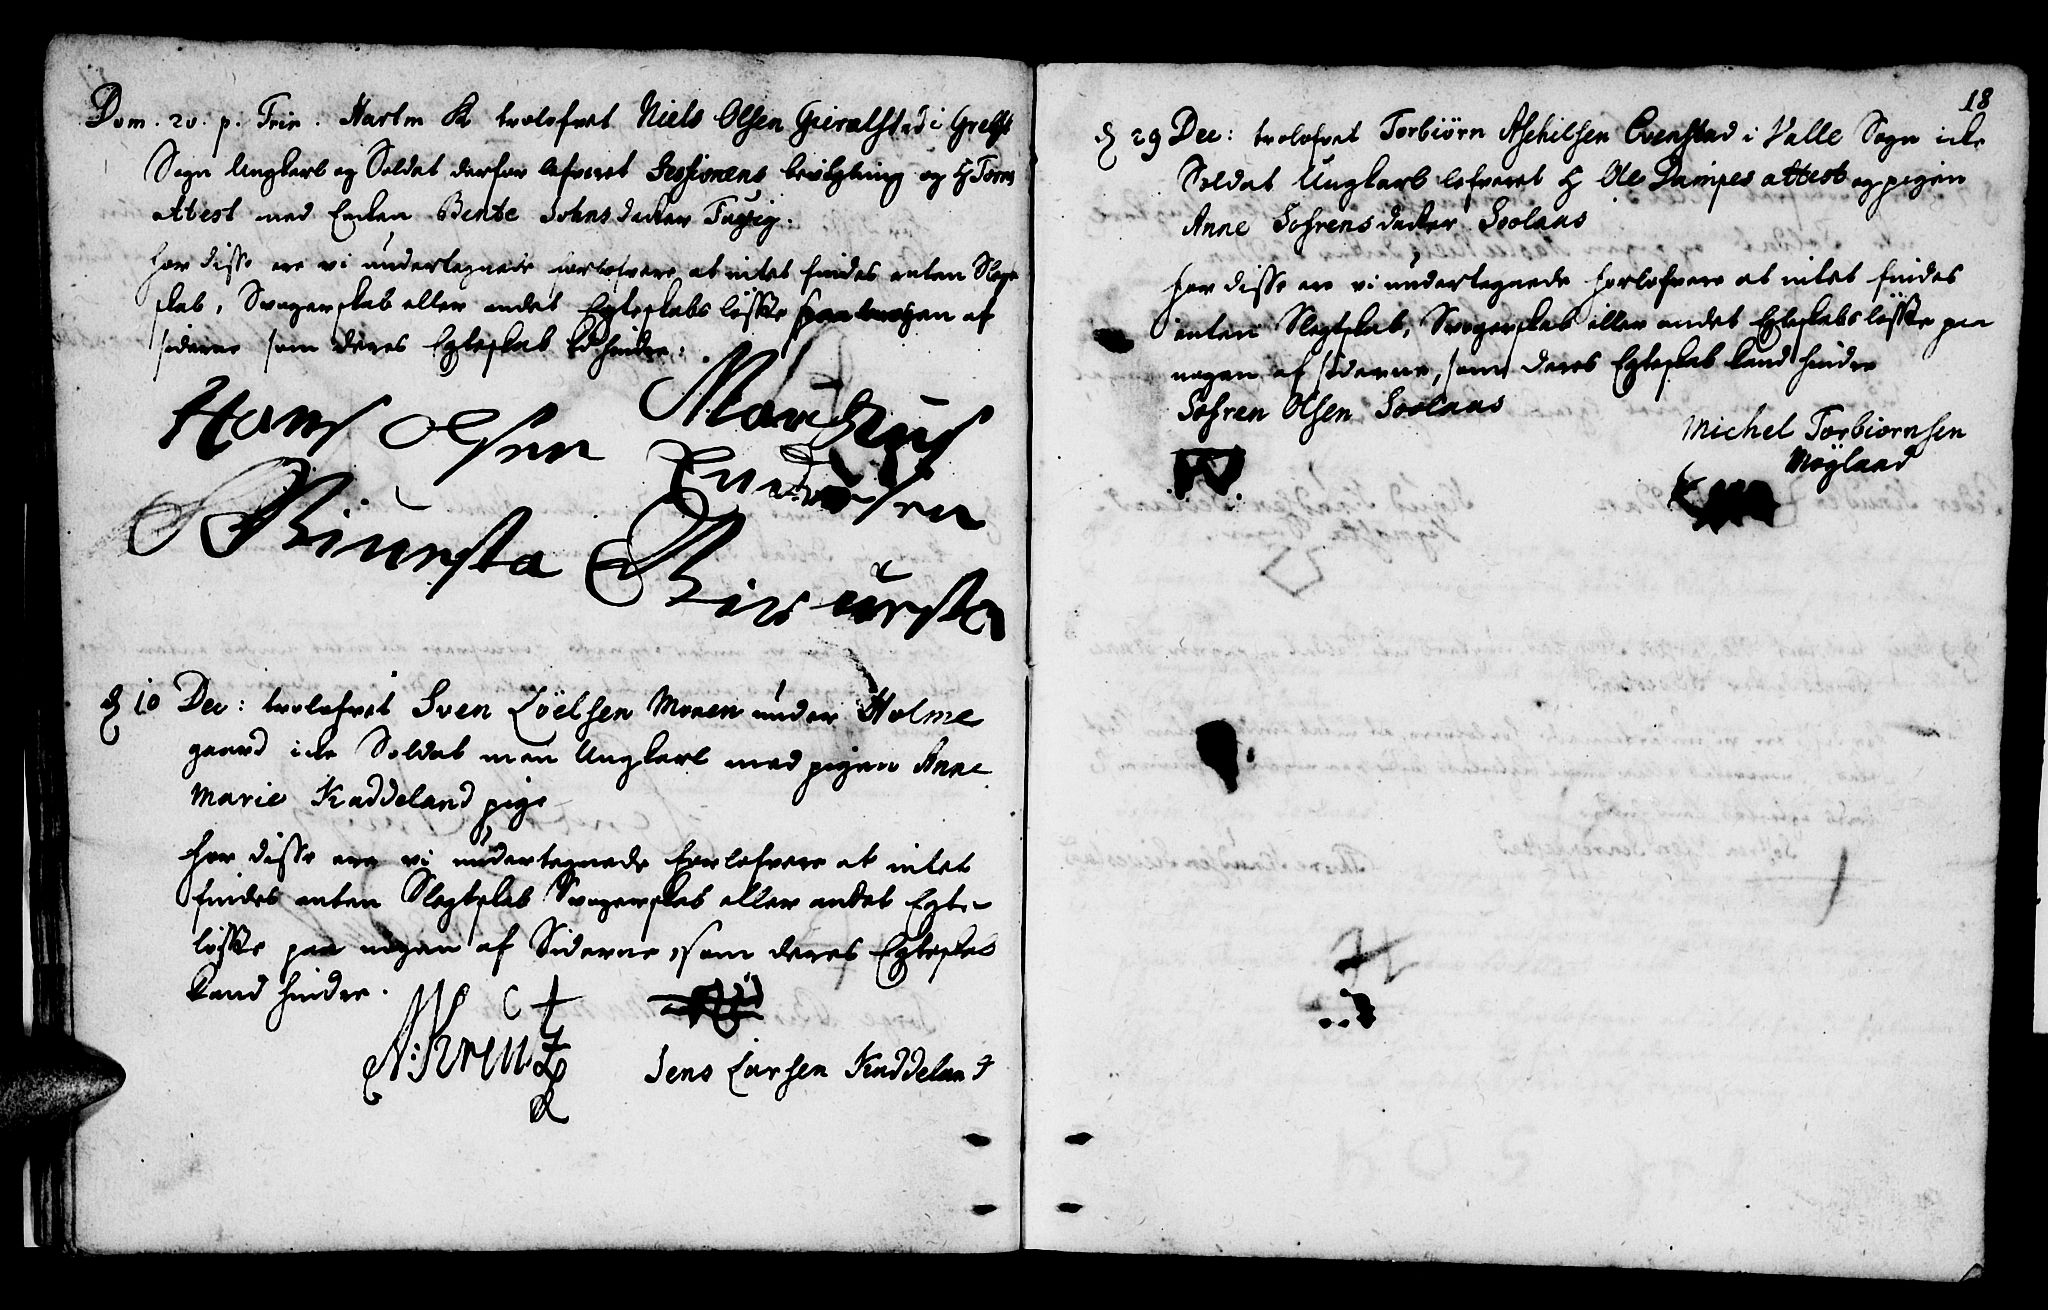 Dom. 20. p. Trin. Hartm K trolofvet Niels Olsen Gieralstad i Greg
Sogn Ungkarl og Soldat derfor lefveret Sessionens bevilgning og H
attest med Enken Bente Johnsdatter
for disse ere vi undertegnede forlofvere at intet findes enten Slegt
skab, Svogerskab eller andet Egteskabs løfte af
siderne som deres Egteskab hindre.
Hans Olsen Markus
d 10 Dec: trolofvet Sven Zöelsen Moren under Holme
gaard icke Soldat men Ungkarl med pigen Anne
Marie Kaddeland pige
for disse ere vi undertegnede forlofvere at intet
findes enten Slegtskab Svogerskab eller andet Egte
løfte paa nogen af Siderne, som deres Egteskab
kand hindre.
Jens Larsen Kaddeland
18
d 29 Dec: trolofvet Torbiörn Aschilsen Evenstad i Valle Sogn icke
Soldat Ungkarl lefveret H Ole Dampes attest og pigen
Anne Sofrensdatter Soolaas
for disse ere vi undertegnede forlofvere at intet findes
enten Slegtskab, Svogerskab eller andet Egteskabs løfte paa
nogen af siderne, som deres Egteskab kand hindre
Sofren Olsen Soolaas
Michel Torbiørnsen
Møglaad